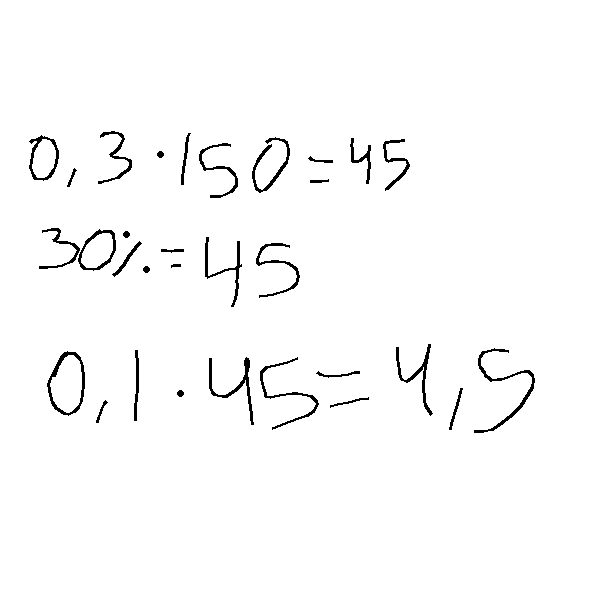 0,3·150=45
30%=45
0,1·45=4,5